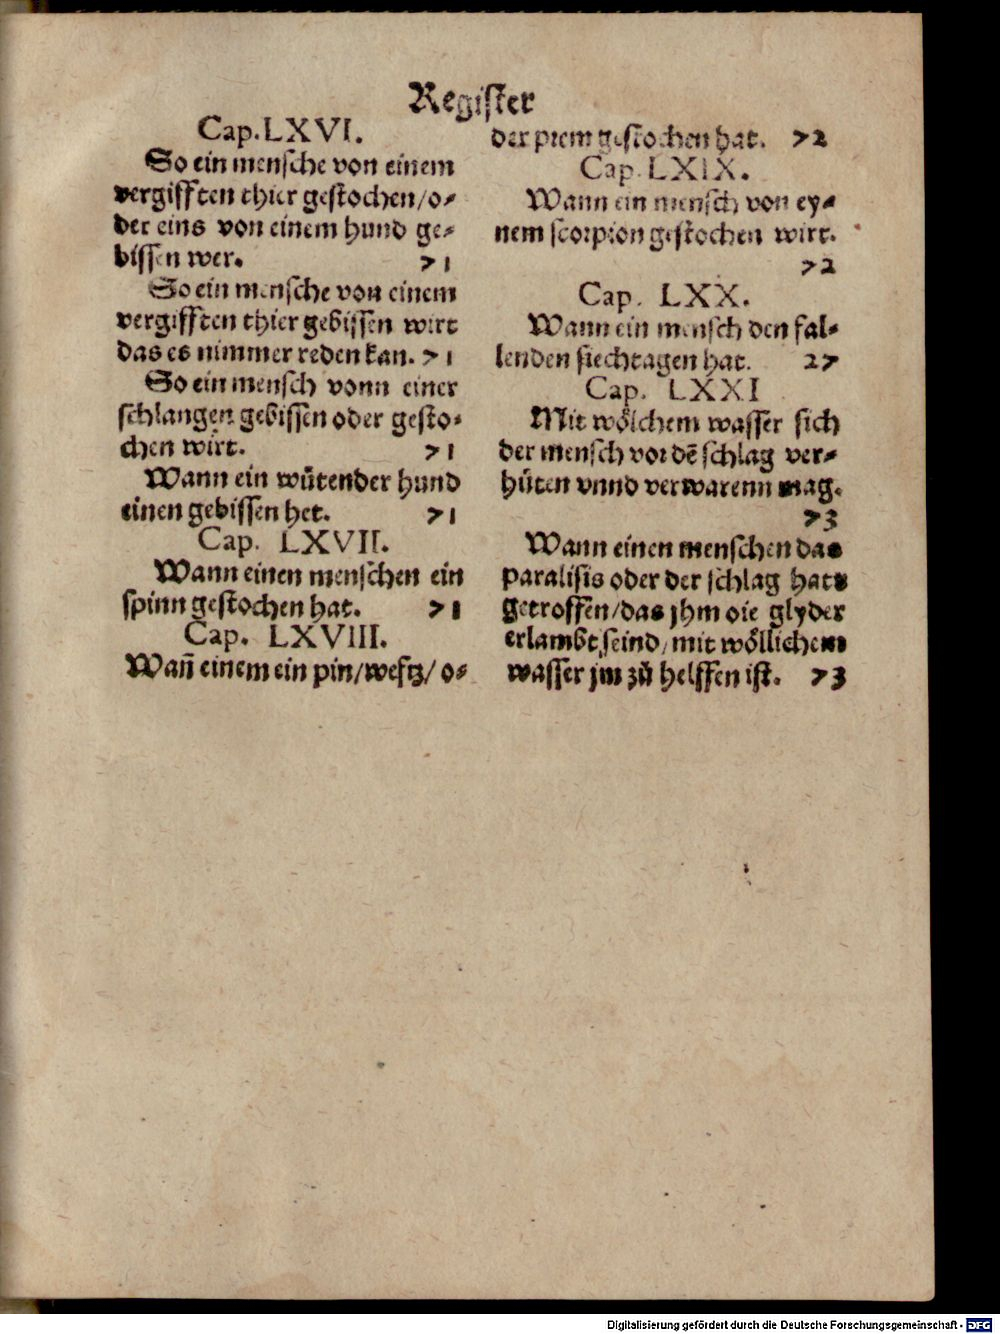 Register
Cap. LXVI.
So ein mensche von einem
vergifften thier gestochen/o⸗
der eins von einem hund ge⸗
bissen wer. 71
So ein mensche von einem
vergifften thier gebissen wirt
das es nimmer reden kan. 71
So ein mensch vonn einer
schlangen gebissen oder gesto⸗
chen wirt. 71
Wann ein wütender hund
einen gebissen het. 71
Cap. LXVII.
Wann einen menschen ein
spinn gestochen hat. 71
Cap. LXVIII.
Wañ einem ein pin/weftz/ o⸗
der prem gestochen hat. 72
Cap. LXIX.
Wann ein mensch von ey⸗
nem scorpion gestochen wirt.
72
Cap. LXX.
Wann ein mensch den fal⸗
lenden siechtagen hat. 27
Cap. LXXI
Mit woͤlchem wasser sich
der mensch vor dē schlag ver⸗
hüten vnnd verwarenn mag.
73
Wann einen menschen das
paralisis oder der schlag hat
getroffen/das jhm die glyder
erlambt seind/ mit woͤllichem
wasser jm zů helffen ist. 73
Digitalisierung gefördert durch die Deutsche Forschungsgemeinschaft - DFG